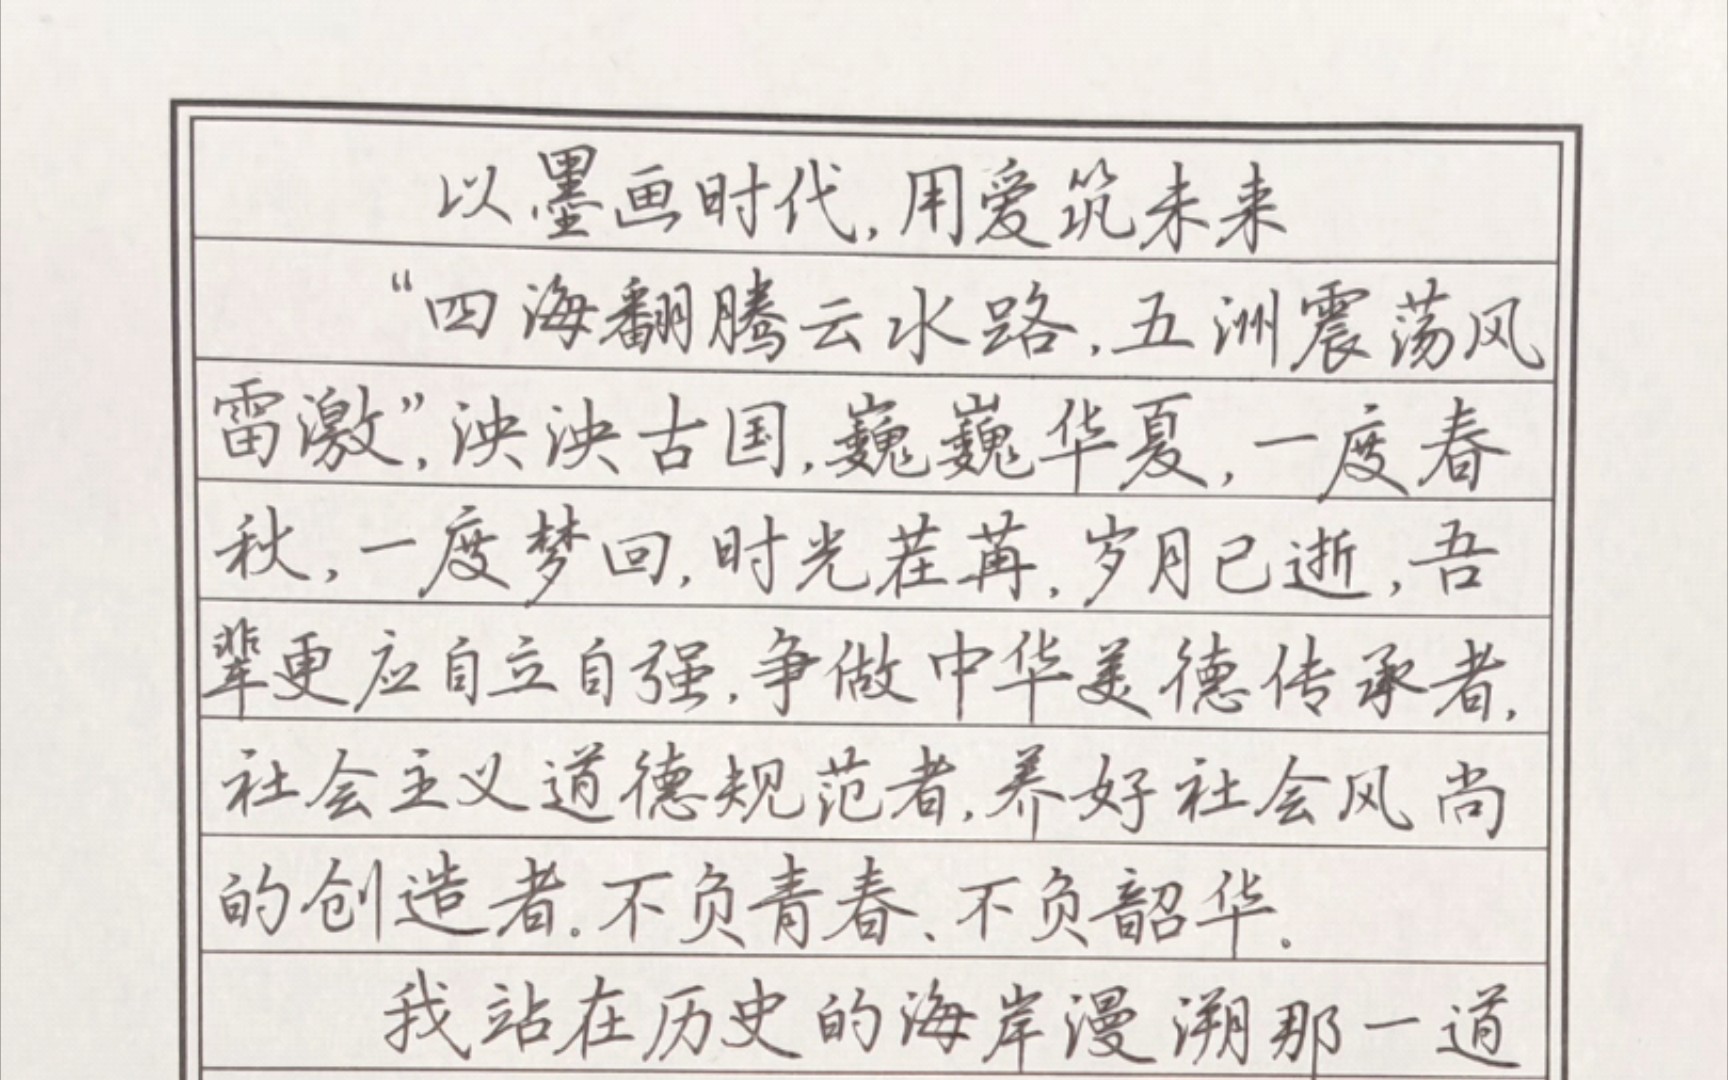 以墨画时代,用爱筑未来
“四海翻腾云水路,五洲震荡风
雷激”,泱泱古国,巍巍华夏,一度春
秋,一度梦回,时光荏苒,岁月已逝,吾
辈更应自立自强,争做中华美德传承者,
社会主义道德规范者,养好社会风尚
的创造者。不负青春、不负韶华。
我站在历史的海岸漫溯那一道